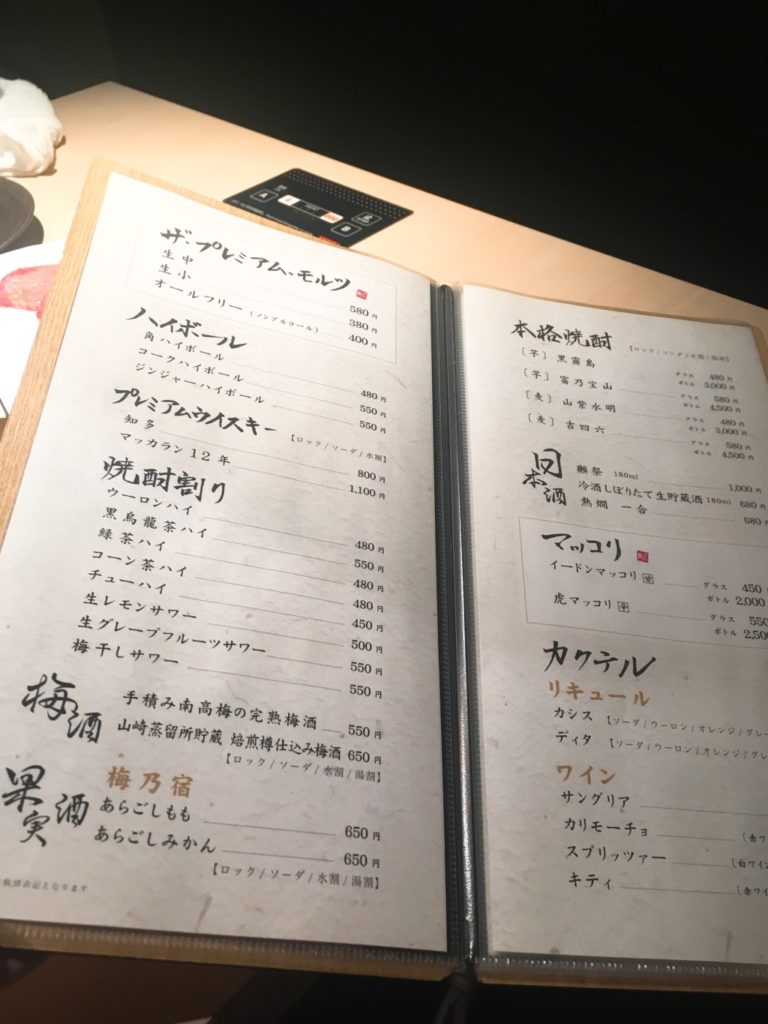 ザ・プレミアム・モルツ
生中 580円
生小 380円
オールフリー（ノンアルコール） 400円
ハイボール
角ハイボール 480円
コークハイボール 550円
ジンジャーハイボール 550円
プレミアムウイスキー 【ロック/ソーダ/水割】
知多 800円
マッカラン12年 1,100円
焼酎割り
ウーロンハイ 480円
黒烏龍茶ハイ 550円
緑茶ハイ 480円
コーン茶ハイ 480円
チューハイ 450円
生レモンサワー 500円
生グレープフルーツサワー 550円
梅干しサワー 550円
梅酒
手積み南高梅の完熟梅酒 550円
山崎蒸留所貯蔵 焙煎樽仕込み梅酒 650円
【ロック/ソーダ/水割/湯割】
果実酒
梅乃宿
あらごしもも 650円
あらごしみかん 650円
【ロック/ソーダ/水割/湯割】
となります
本格焼酎 【ロック/ソーダ/水割/湯割】
〔芋〕黒霧島 グラス 480円
ボトル 3,000円
〔芋〕富乃宝山 グラス 580円
ボトル 4,500円
〔麦〕山紫水明 グラス 480円
ボトル 3,000円
〔麦〕吉四六 グラス 580円
ボトル 4,500円
日本酒
獺祭 180ml 1,000円
冷酒しぼりたて生貯蔵酒 180ml 680円
熱燗 一合 680
マッコリ
イードンマッコリ グラス 450
ボトル 2,000
虎マッコリ グラス 550
ボトル 2,500
カクテル
リキュール
カシス 【ソーダ/ウーロン/オレンジ/グレー
ディタ 【ソーダ/ウーロン/オレンジ/グレ
ワイン
サングリア
カリモーチョ 〔赤ワ
スプリッツァー 〔白ワイン
キティ 〔赤ワイ